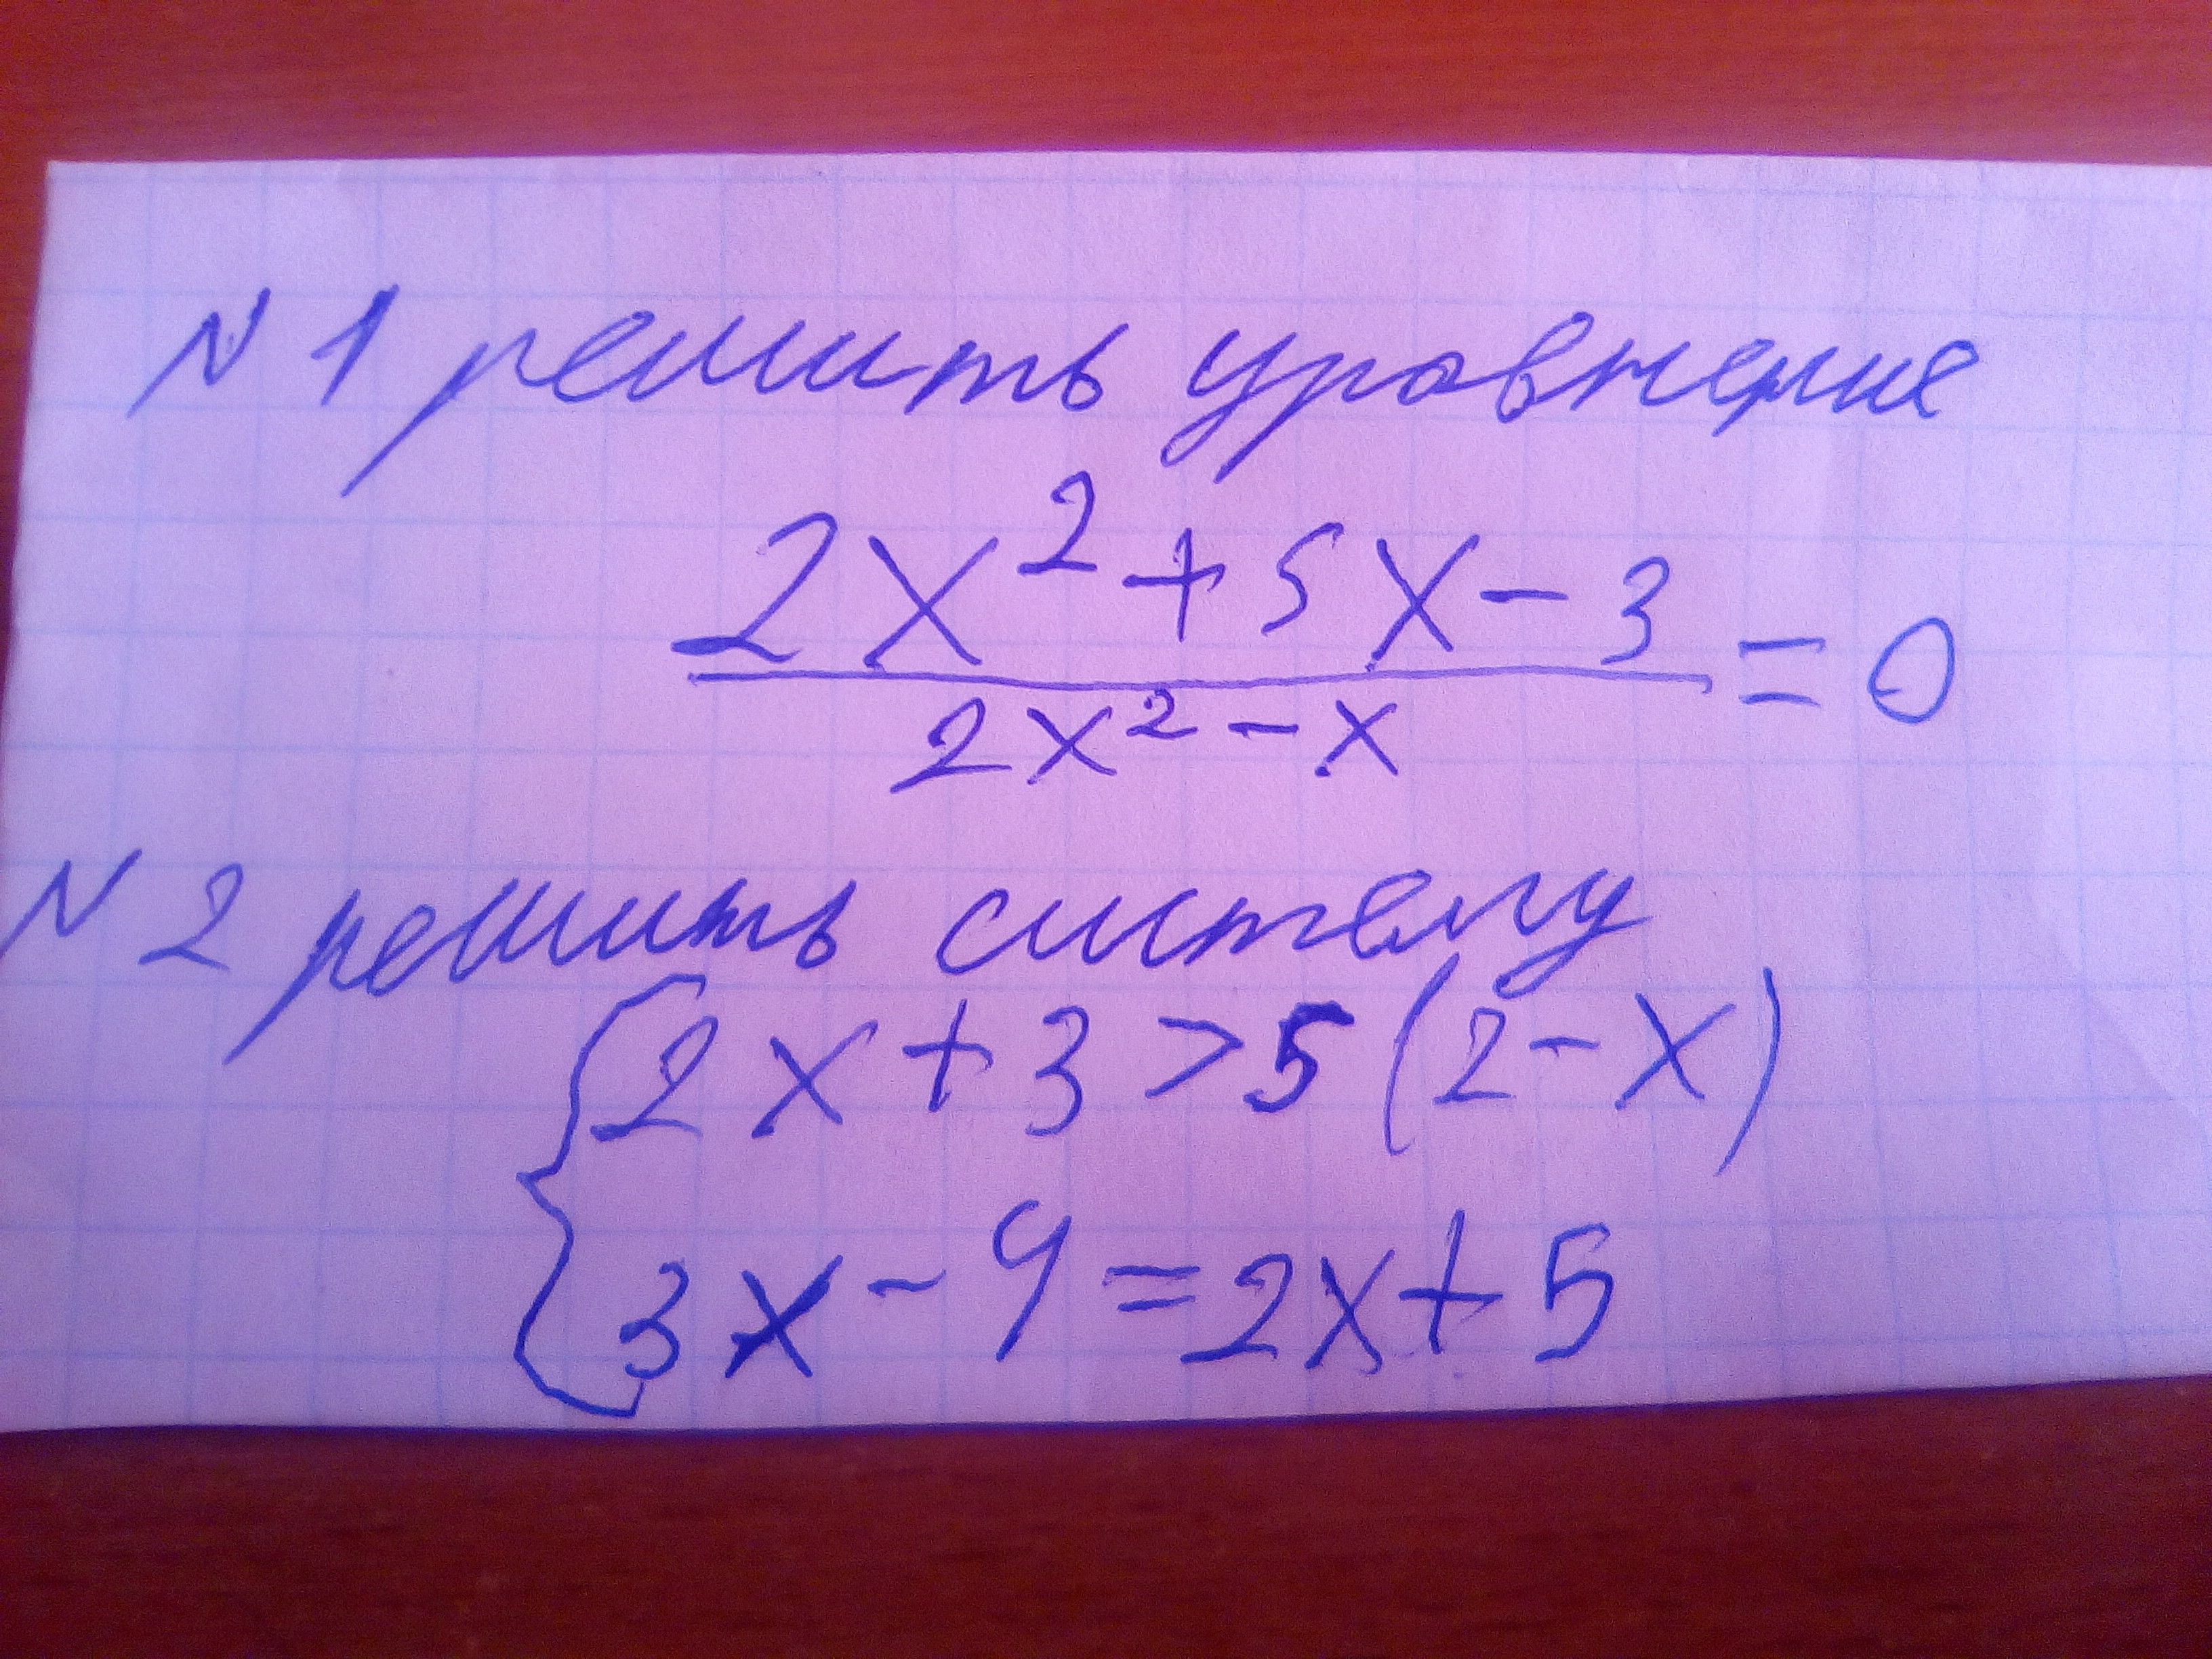 N 1 решить уравнение
2x² + 5x - 3
2x² - x
= 0
N 2 решить систему
{ 2x + 3 > 5 (2 - x)
3x - 9 = 2x + 5